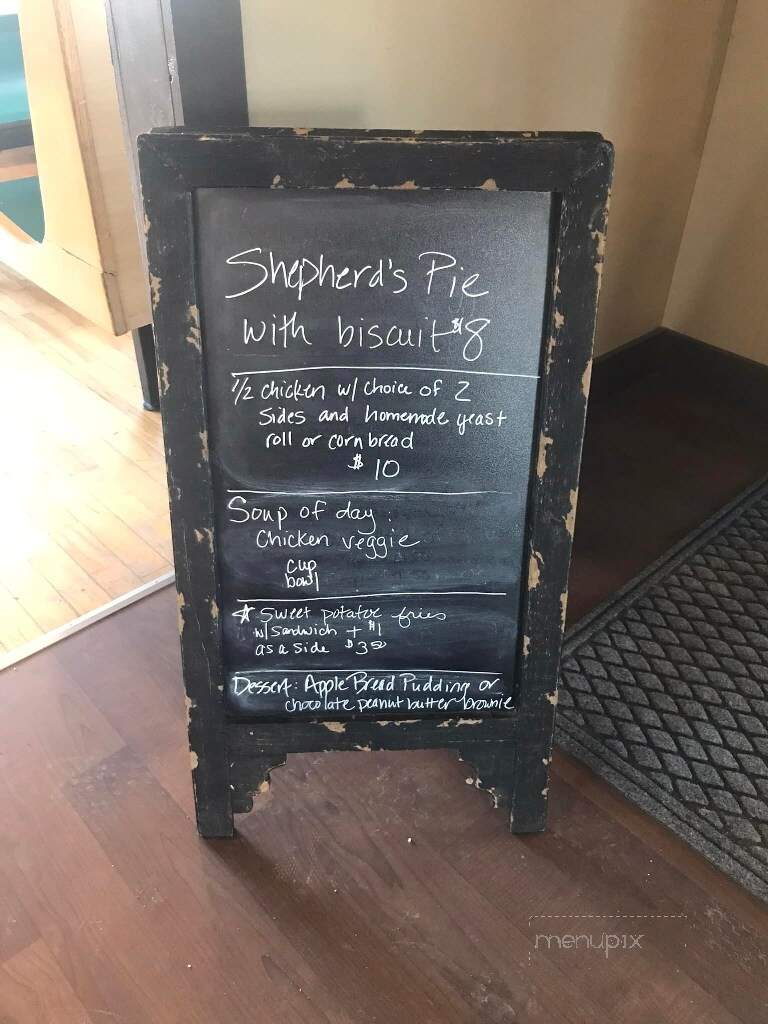 Shepherd's Pie
with biscuit $8
1/2 chicken w/ choice of 2
sides and homemade yeast
roll or corn bread
$10
Soup of day:
Chicken veggie
cup
bowl
☆ Sweet potatoe fries
w/ sandwich + $1
as a side $3.50
Dessert: Apple Bread Pudding or
chocolate peanut butter brownie
menupix